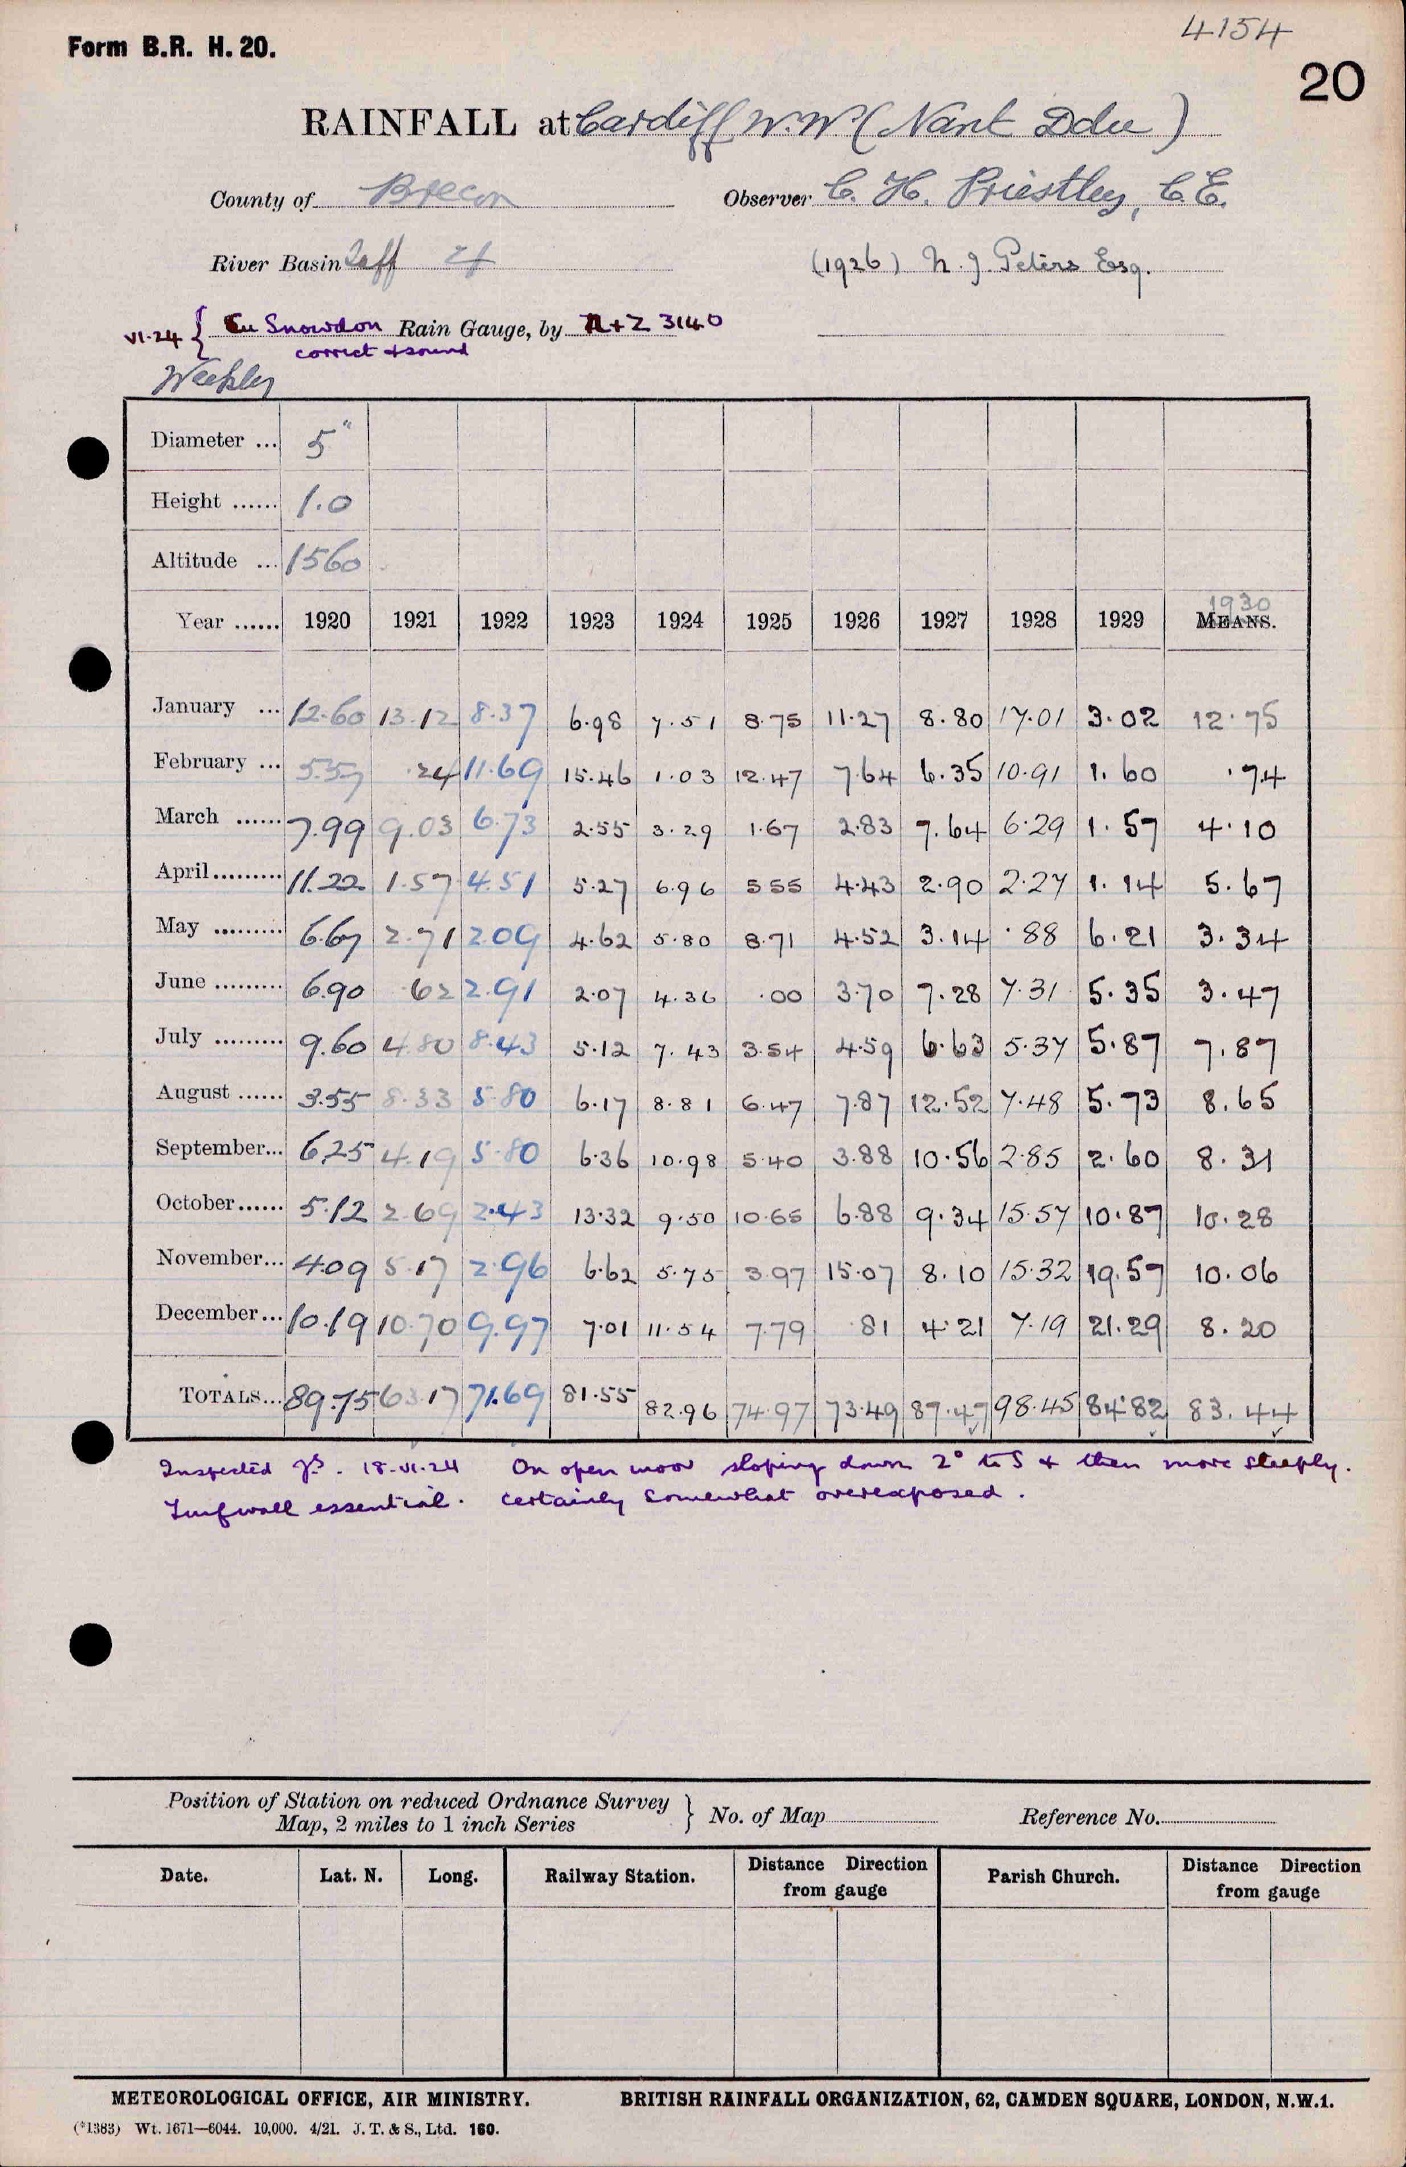 4154
Form B.R. H. 20.
20
RAINFALL at Cardiff W.W. (Nant Ddu)
County of Brecon Observer C. H. Priestley, C.E.
River Basin Taff 4 (1926) N. J. Peters Esq.
VI.24 { Cu Snowdon Rain Gauge, by N+Z 3140
correct & sound
Weekly
Diameter ... 5"
Height ...... 1.0
Altitude ... 1560
1930
Year ...... 1920 1921 1922 1923 1924 1925 1926 1927 1928 1929 MEANS.
January ... 12.60 13.12 8.37 6.98 7.51 8.75 11.27 8.80 17.01 3.02 12.75
February ... 5.59 .24 11.69 15.46 1.03 12.47 7.64 6.35 10.91 1.60 .74
March ...... 7.99 9.03 6.73 2.55 3.29 1.67 2.83 7.64 6.29 1.57 4.10
April......... 11.22 1.57 4.51 5.27 6.96 5 55 4.43 2.90 2.27 1.14 5.67
May ......... 6.67 2.71 2.09 4.62 5.80 8.71 4.52 3.14 .88 6.21 3.34
June ......... 6.90 .62 2.91 2.07 4.36 .00 3.70 7.28 7.31 5.35 3.47
July ......... 9.60 4.80 8.43 5.12 7.43 3.54 4.59 6.63 5.37 5.87 7.87
August ...... 3.55 8.33 5.80 6.17 8.81 6.47 7.87 12.52 7.48 5.73 8.65
September... 6.25 4.19 5.80 6.36 10.98 5.40 3.88 10.56 2.85 2.60 8.31
October...... 5.12 2.69 2.43 13.32 9.50 10.65 6.88 9.34 15.57 10.87 10.28
November... 4.09 5.17 2.96 6.62 5.75 3.97 15.07 8.10 15.32 19.57 10.06
December... 10.19 10.70 9.97 7.01 11.54 7.79 .81 4.21 7.19 21.29 8.20
TOTALS... 89.75 63.17 71.69 81.55 82.96 74.97 73.49 87.47 98.45 84.82 83.44
Inspected 18.VI.24 On open moor sloping down 2° to S & then more steeply.
Turfwall essential. Certainly somewhat overexposed.
Position of Station on reduced Ordnance Survey Map, 2 miles to 1 inch Series } No. of Map Reference No.
Date. Lat. N. Long. Railway Station. Distance Direction from gauge Parish Church. Distance Direction from gauge
METEOROLOGICAL OFFICE, AIR MINISTRY. BRITISH RAINFALL ORGANIZATION, 62, CAMDEN SQUARE, LONDON, N.W.1.
(*1383) Wt. 1671—6044. 10,000. 4/21. J. T. & S., Ltd. 160.